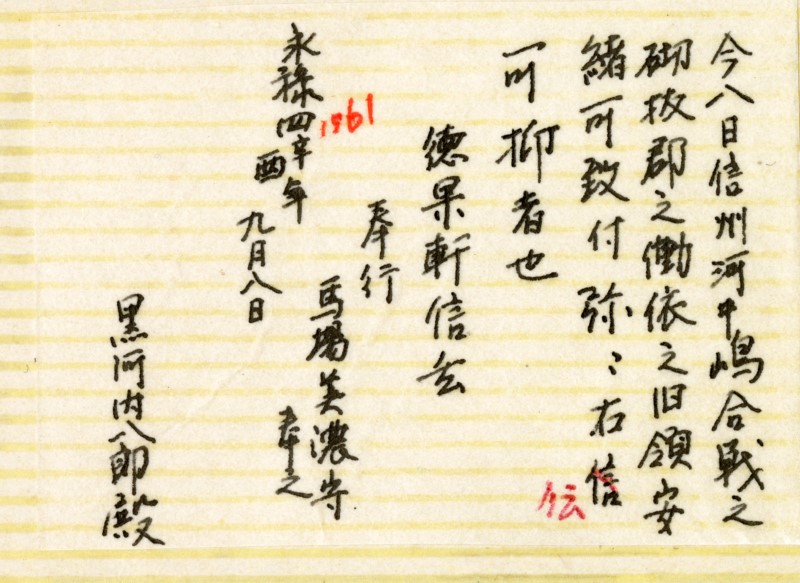 今八日信州河中嶋合戦之
砌抜郡之働依之旧領安
緒可致付弥〻右信
伝
可抑者也
徳果軒信玄
奉行
馬場美濃守
奉之
永禄四辛酉年
1961
九月八日
黒河内八郎殿